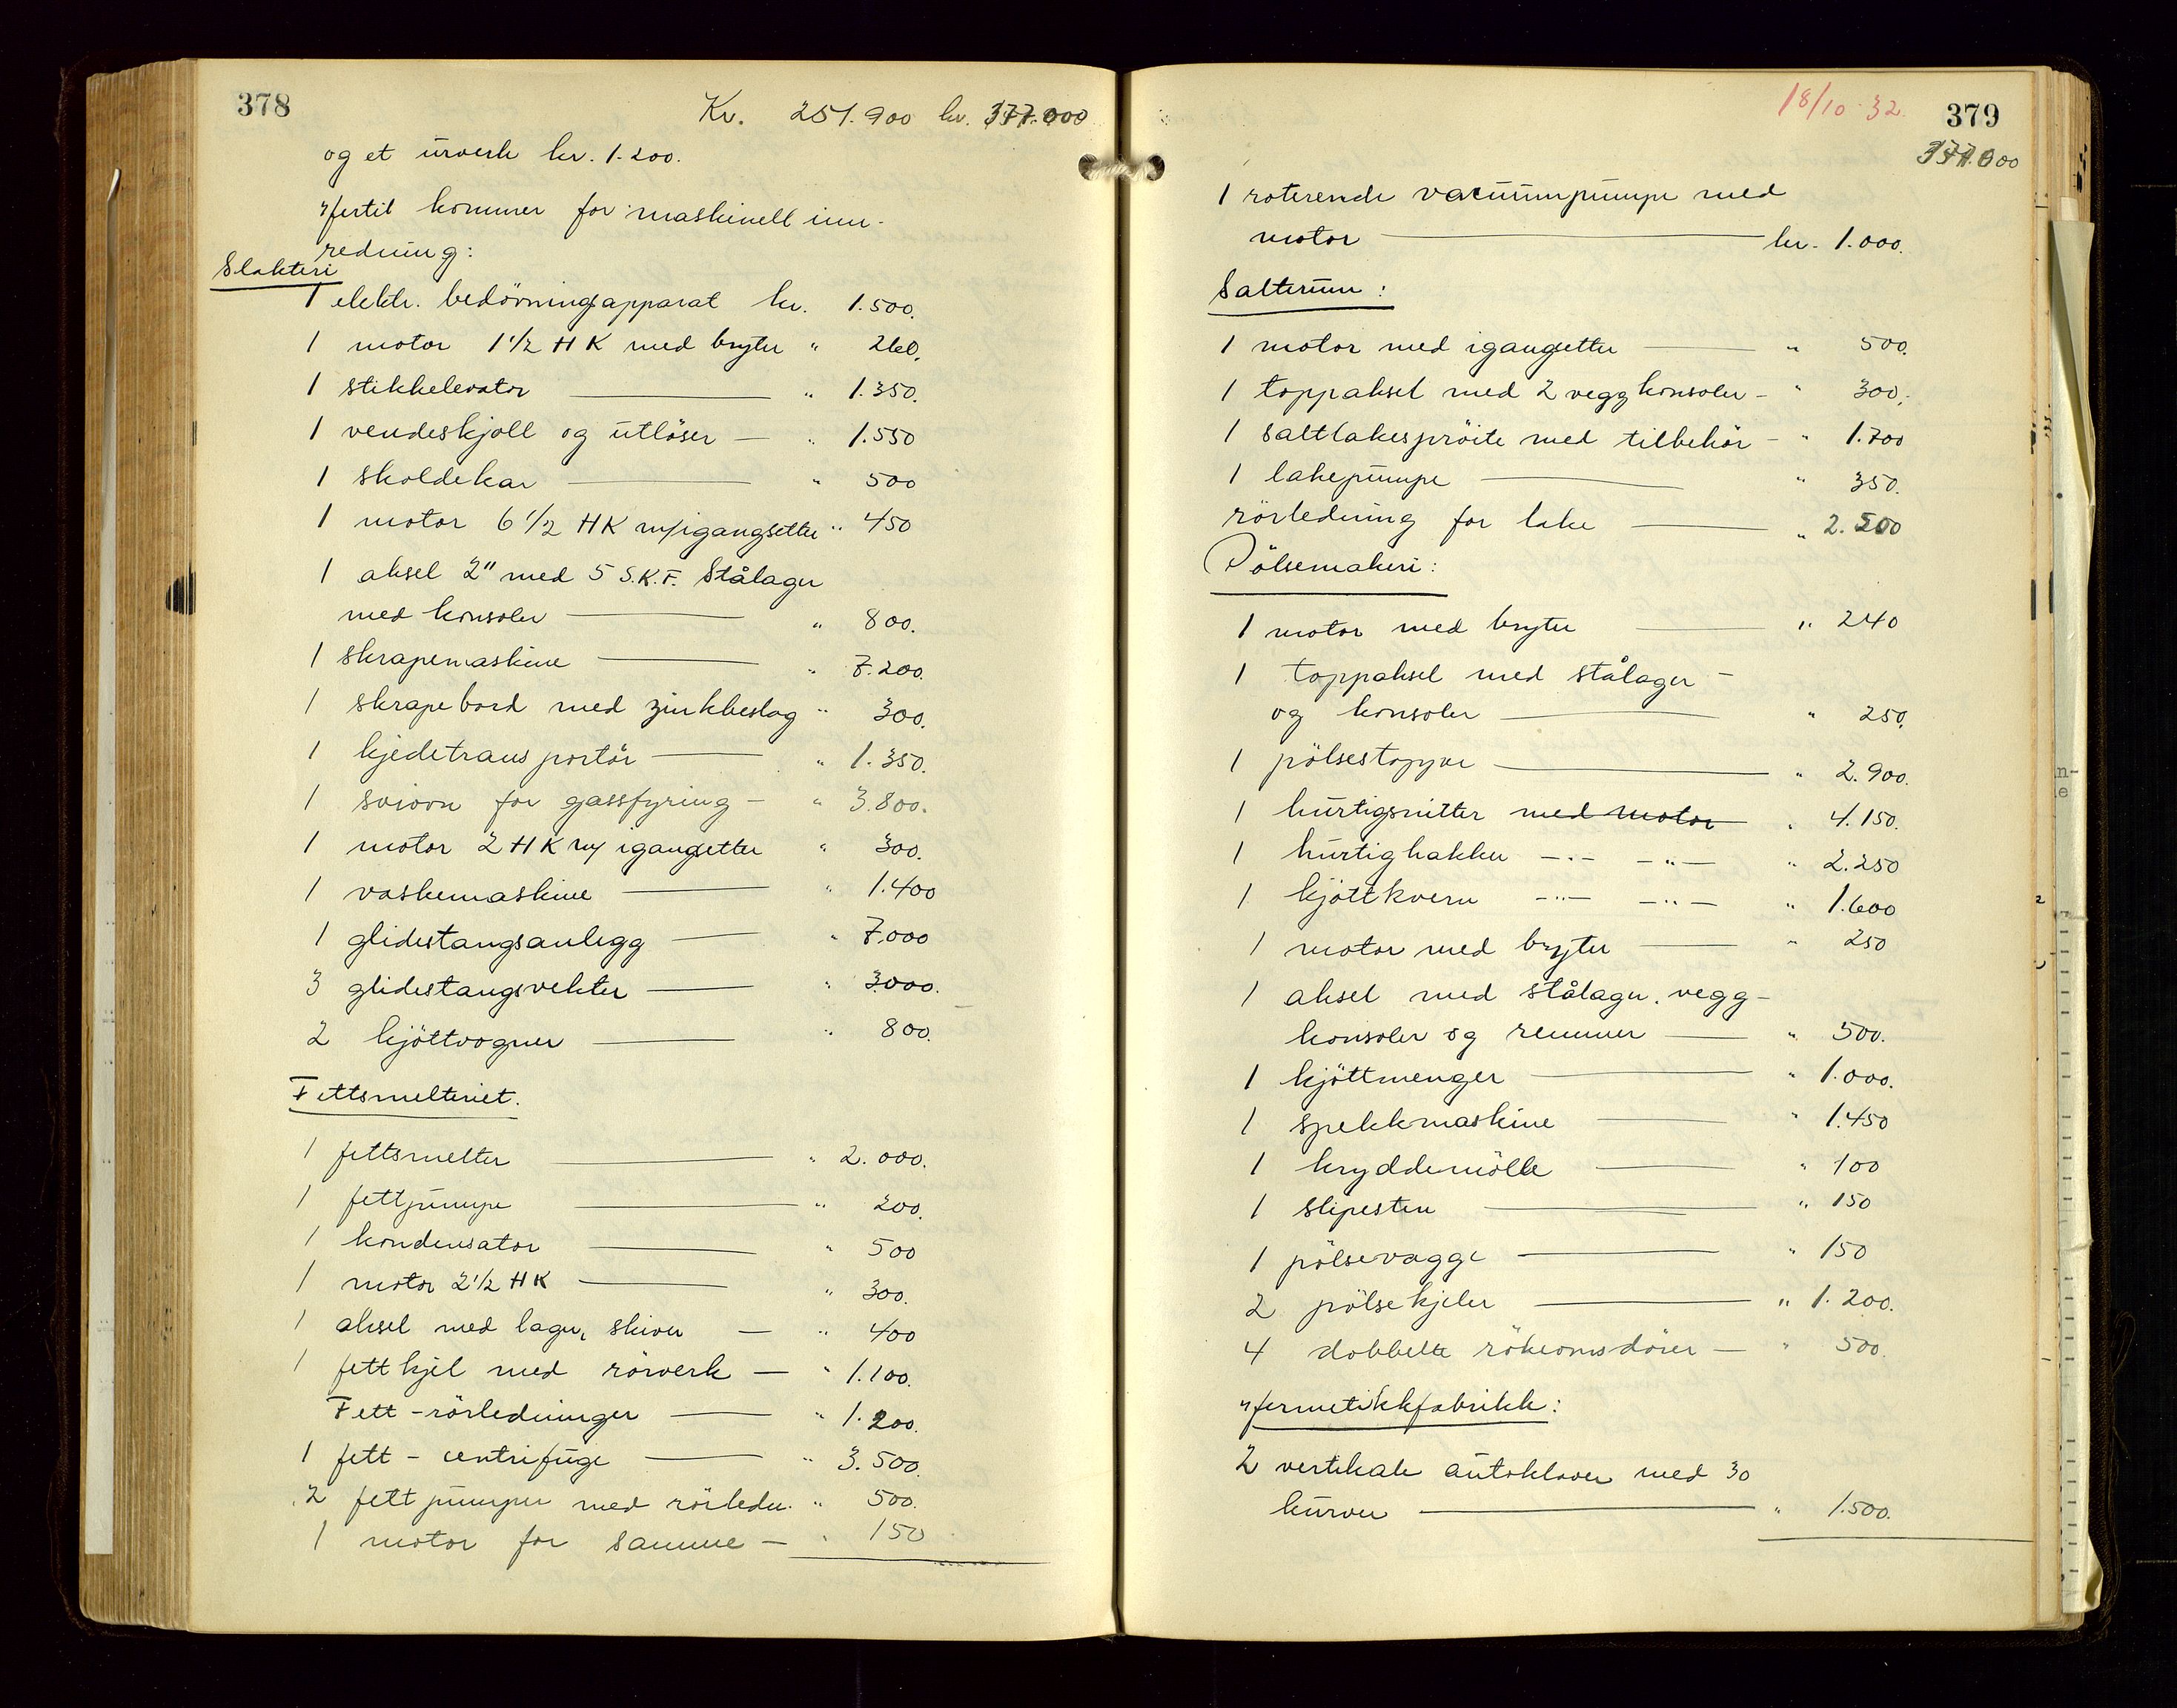 378
Kr. 251.900 kr. 377.000
og et urverk kr. 1.200.
Hertil kommer for maskinell inn-
redning:
Slakteri
1 elektr. bedövningsapparat kr. 1.500.
1 motor 1 1/2 HK med bryter " 260.
1 stikkelevator — " 1.350.
1 vendeskjoll og utlöser — " 1.550
1 skoldekar — " 500
1 motor 6 1/2 HK m/igangsetter " 450
1 aksel 2" med 5 S.K.F. Stålager
med konsoler — " 800.
1 skrapemaskine — " 7.200.
1 skrapebord med zinkbeslag " 300.
1 kjedetransportör — " 1.350.
1 sviovn for gassfyring — " 3.800.
1 motor 2 HK m/ igangsetter " 300.
1 vaskemaskine — " 1.400
1 glidestangsanlegg — " 7.000
3 glidestangsvekter — " 3000.
2 kjöttvogner — " 800.
Fettsmelteriet.
1 fettsmelter — " 2.000.
1 fettpumpe — " 200.
1 kondensator — " 500
1 motor 2 1/2 HK — " 300.
1 aksel med lager, skiver — " 400
1 fettkjel med rörverk — " 1.100.
Fett-rörledninger — " 1.200.
1 fett-centrifuge — " 3.500.
2 fettpumper med rörledn. " 500.
1 motor for samme — " 150
18/10 32.
379
377.000
1 roterende vacuumpumpe med
motor — kr. 1.000.
Salterum:
1 motor med igangsetter — " 500.
1 toppaksel med 2 veggkonsoler — " 300.
1 saltlakespröite med tilbehör — " 1.700
1 lakepumpe — " 350.
rörledning for lake — " 2.500
Pölsemakeri:
1 motor med bryter — " 240
1 toppaksel med stålager -
og konsoler — " 250.
1 pölsestopper — " 2.900.
1 hurtigsnitter med motor " 4.150.
1 hurtighakker —"— —"— " 2.250
1 kjöttkvern —"— —"— " 1.600
1 motor med bryter — " 250
1 aksel med stålager, vegg-
konsoler og remmer — " 500.
1 kjöttmenger — " 1.000.
1 spekkmaskine — " 1.450
1 kryddemölle — " 100
1 slipesten — " 150
1 pölsevagge — " 150
2 pölsekjeler — " 1.200.
4 dobbelte rökeovnsdörer — " 500.
Hermetikkfabrikk:
2 vertikale autoklaver med 30
kurver — " 1.500.